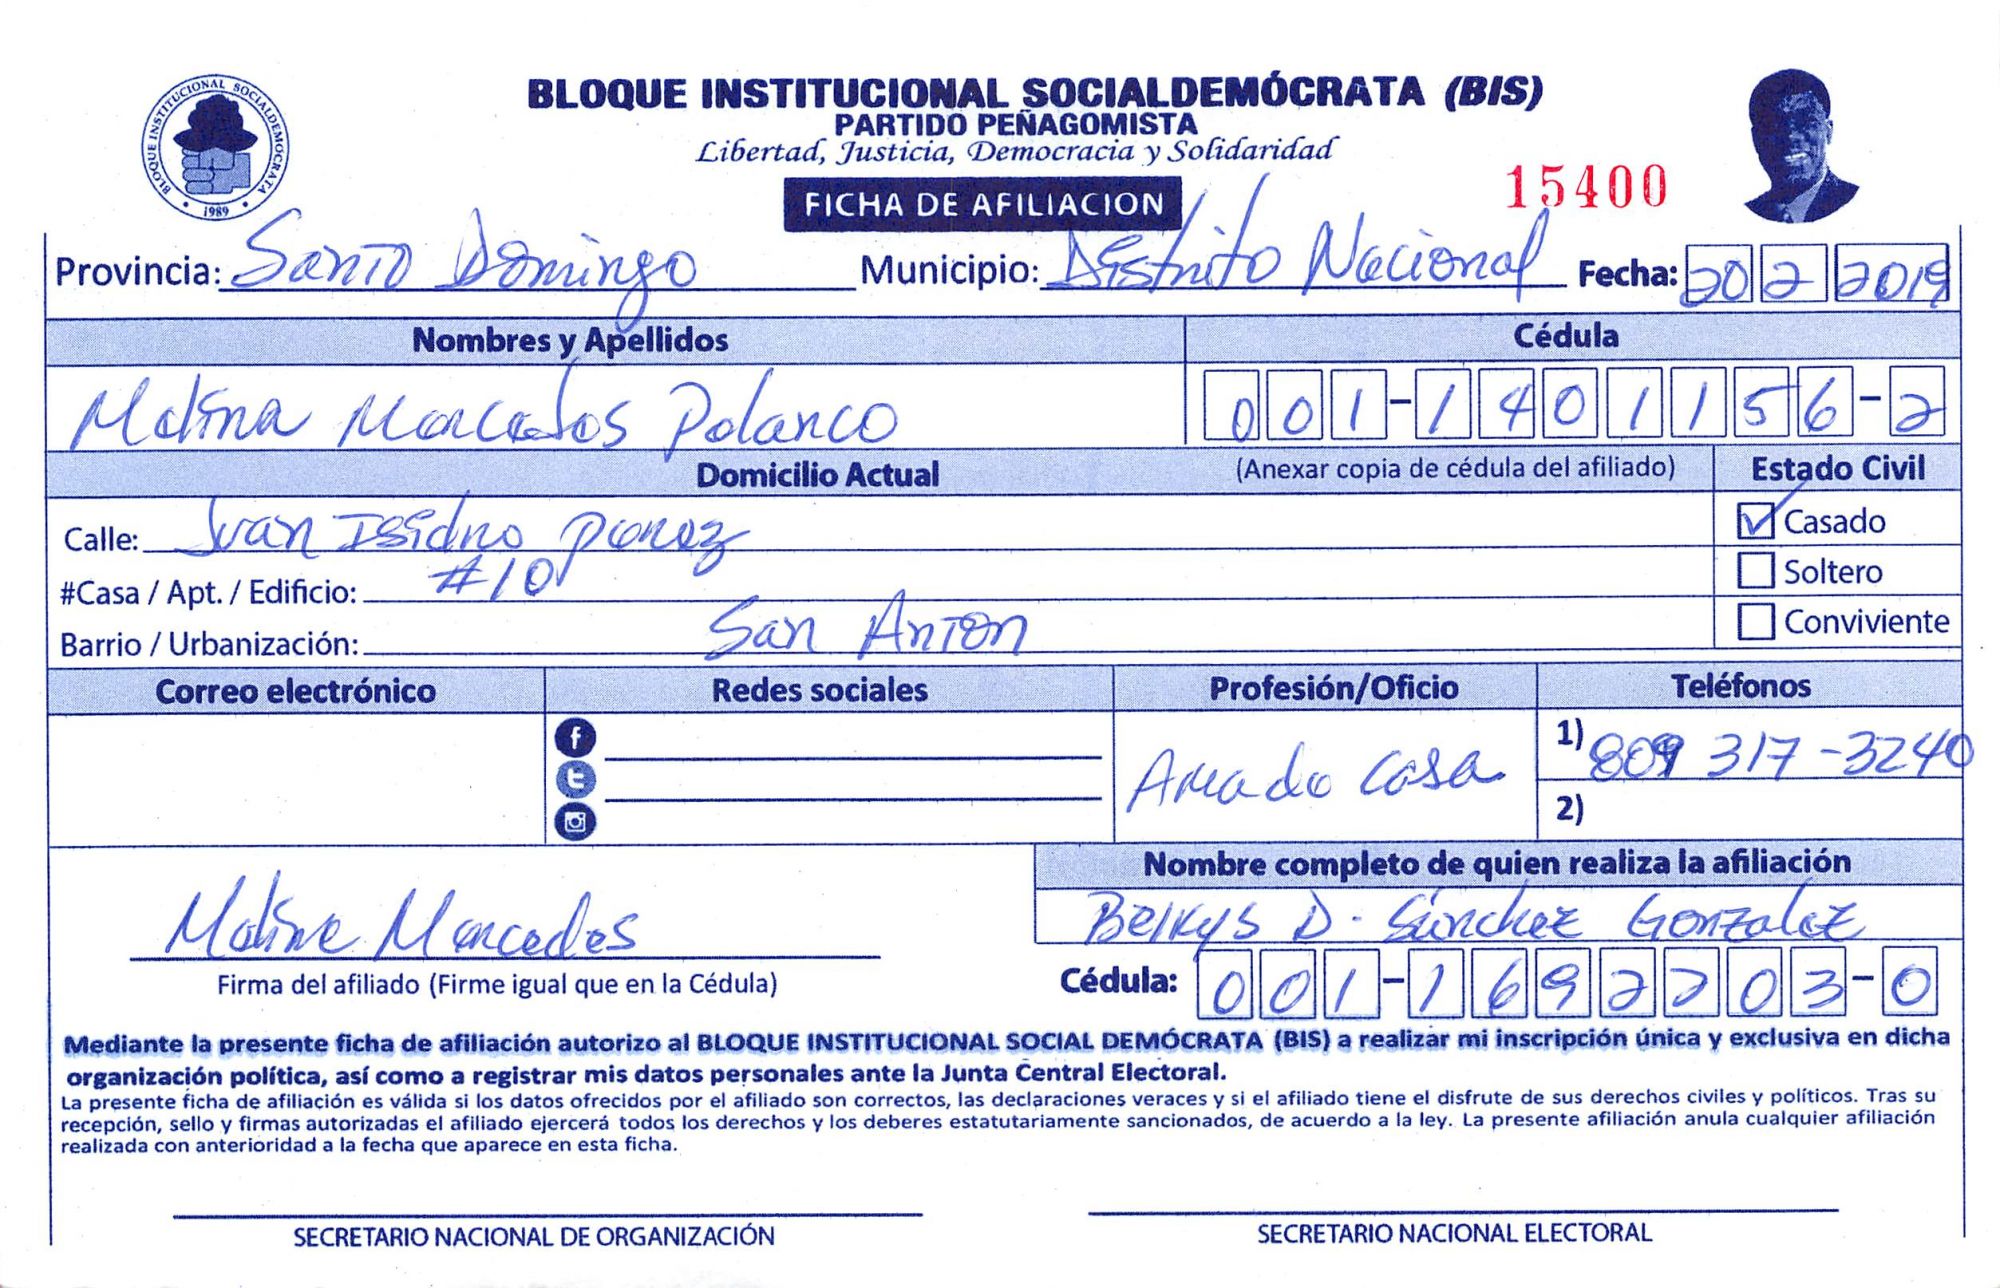 BLOQUE INSTITUCIONAL SOCIALDEMÓCRATA (BIS)
PARTIDO PEÑAGOMISTA
Libertad, Justicia, Democracia y Solidaridad
BLOQUE INSTITUCIONAL SOCIALDEMOCRATA
1989
FICHA DE AFILIACION
15400
Provincia: Santo Domingo Municipio: Distrito Nacional Fecha: 20 2 2019
Nombres y Apellidos Cédula
Melina Mercedes Polanco 001-1401156-2
Domicilio Actual (Anexar copia de cédula del afiliado) Estado Civil
Calle: Juan Isidro Perez Casado
#Casa / Apt. / Edificio: #10 Soltero
Barrio / Urbanización: San Anton Conviviente
Correo electrónico Redes sociales Profesión/Oficio Teléfonos
1) 809 317-3240
Ama de casa
2)
Nombre completo de quien realiza la afiliación
Belkys D. Sánchez Gonzalez
Melina Mercedes
Firma del afiliado (Firme igual que en la Cédula) Cédula: 001-1692203-0
Mediante la presente ficha de afiliación autorizo al BLOQUE INSTITUCIONAL SOCIAL DEMÓCRATA (BIS) a realizar mi inscripción única y exclusiva en dicha
organización política, así como a registrar mis datos personales ante la Junta Central Electoral.
La presente ficha de afiliación es válida si los datos ofrecidos por el afiliado son correctos, las declaraciones veraces y si el afiliado tiene el disfrute de sus derechos civiles y políticos. Tras su
recepción, sello y firmas autorizadas el afiliado ejercerá todos los derechos y los deberes estatutariamente sancionados, de acuerdo a la ley. La presente afiliación anula cualquier afiliación
realizada con anterioridad a la fecha que aparece en esta ficha.
SECRETARIO NACIONAL DE ORGANIZACIÓN SECRETARIO NACIONAL ELECTORAL